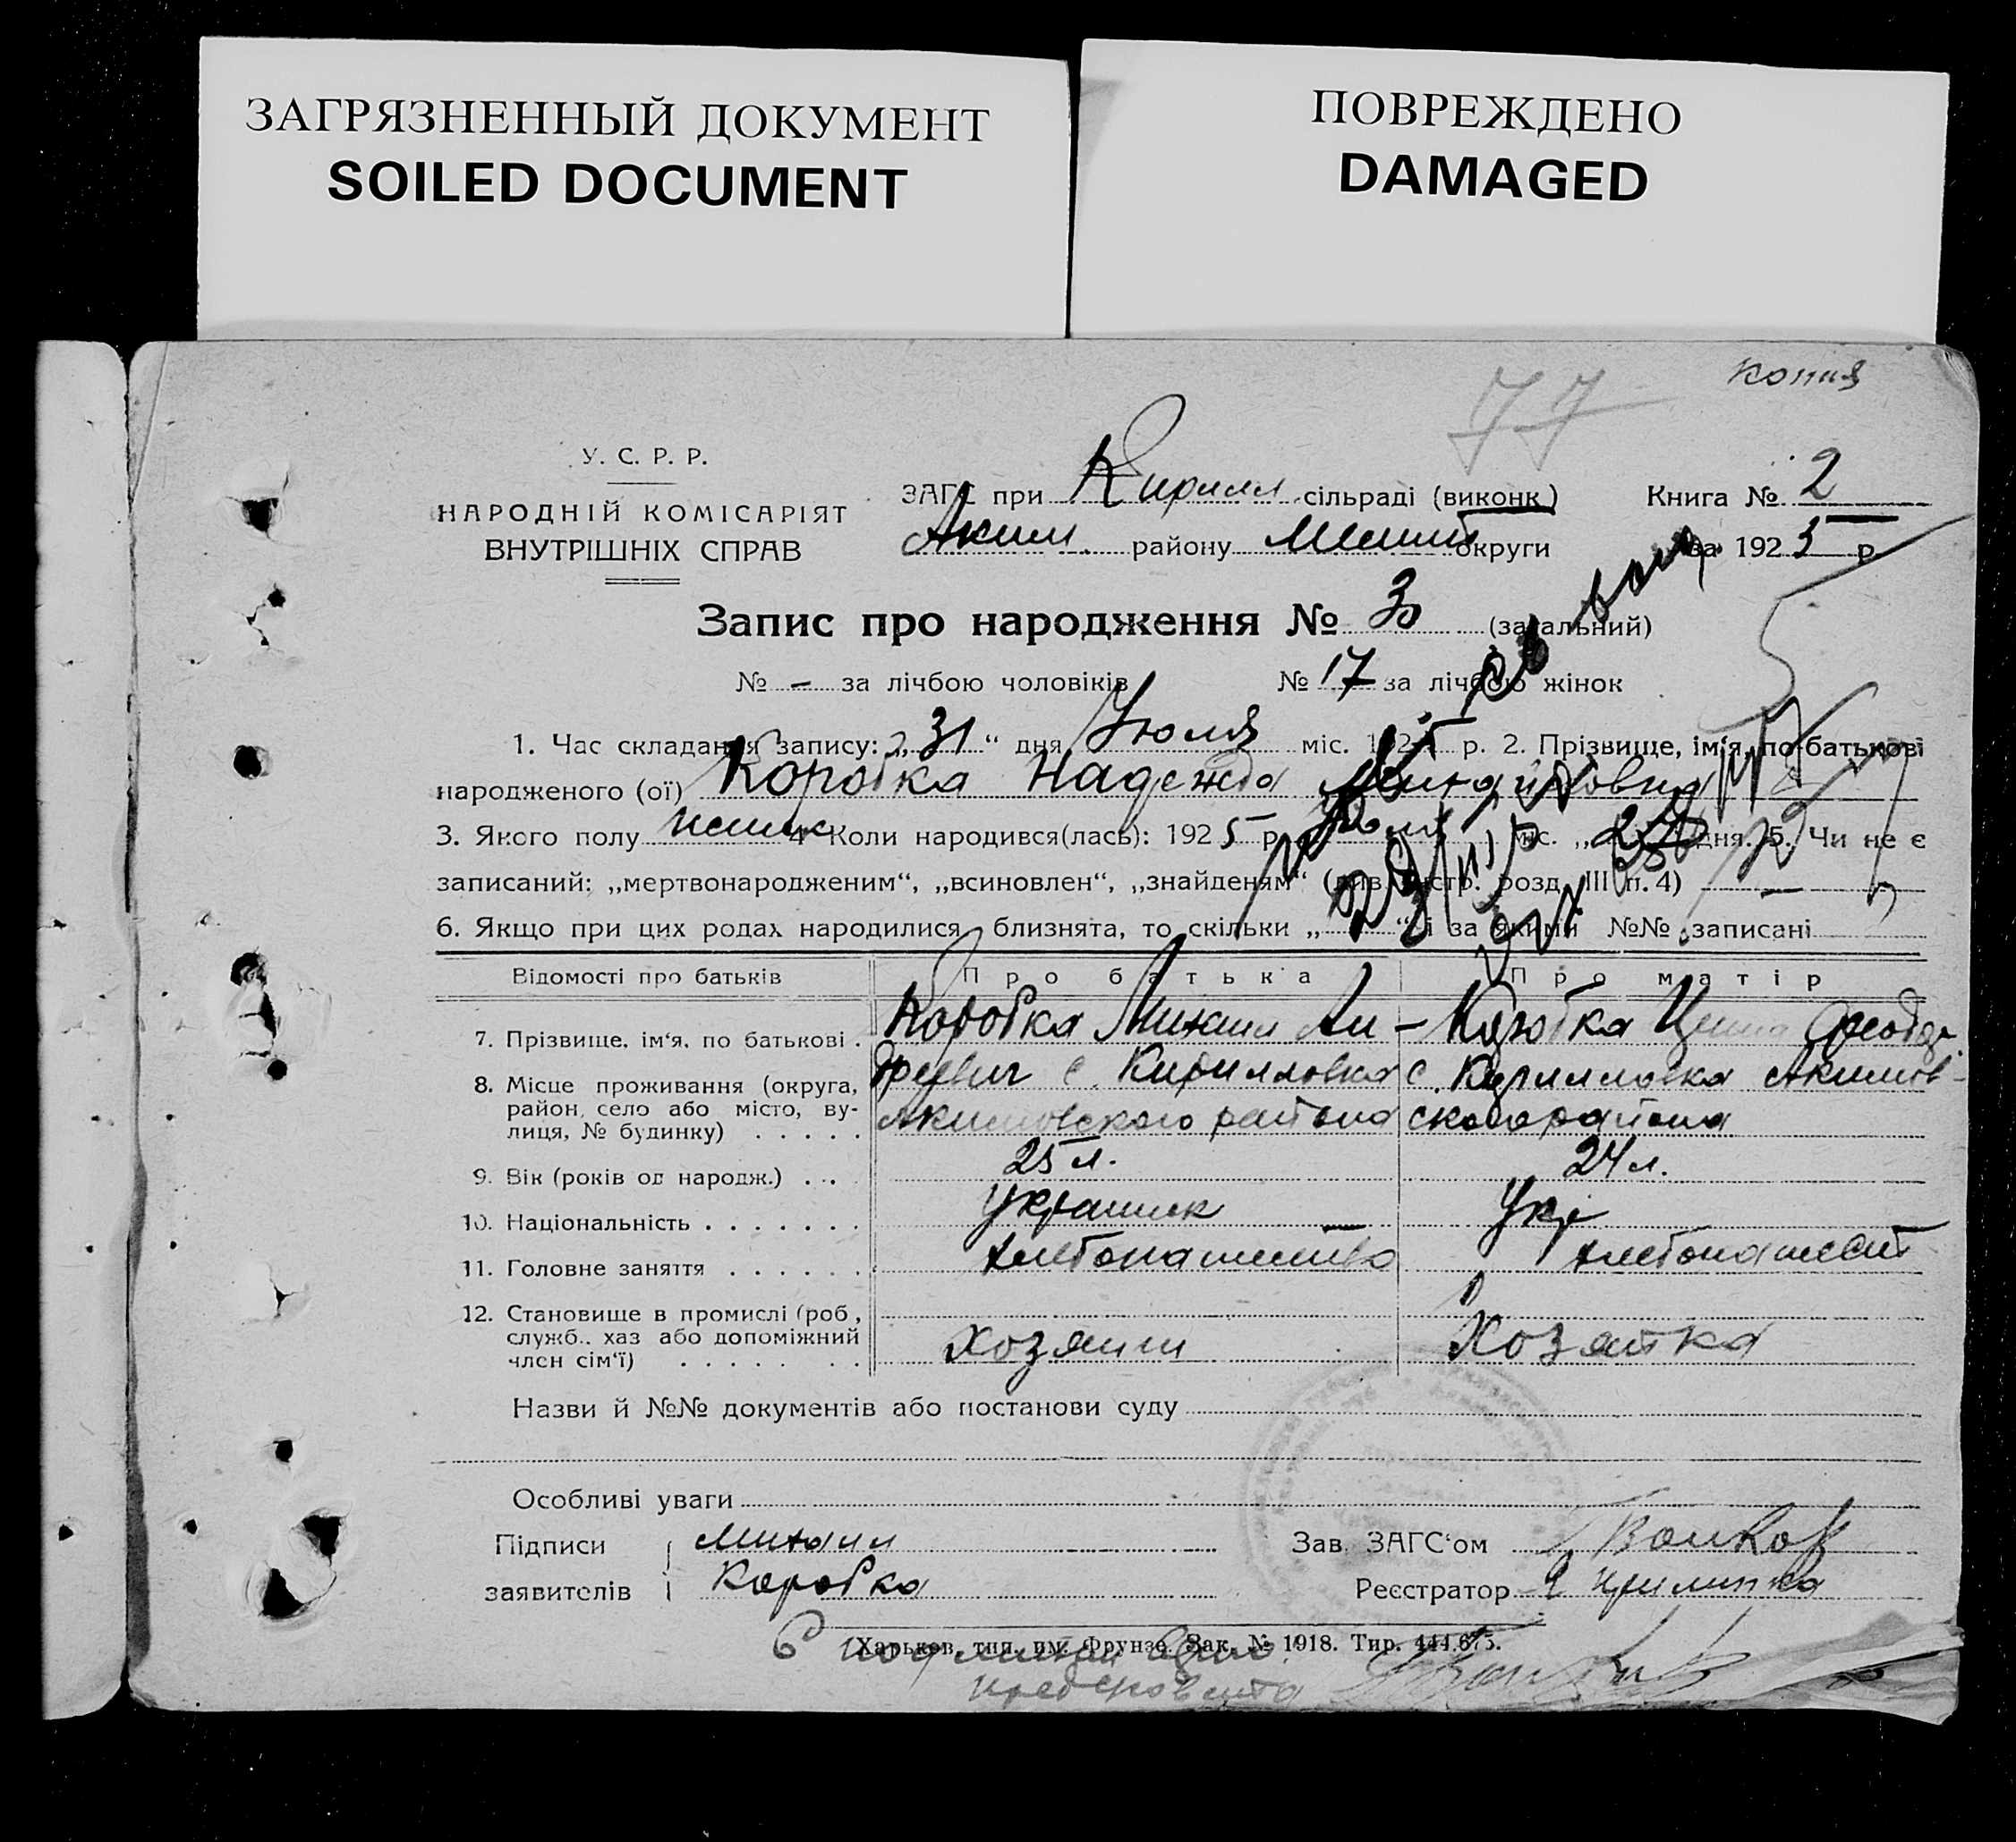 ЗАГРЯЗНЕННЫЙ ДОКУМЕНТ
SOILED DOCUMENT
ПОВРЕЖДЕНО
DAMAGED
копия
77
У. С. Р. Р.
НАРОДНІЙ КОМІСАРІЯТ
ВНУТРІШНІХ СПРАВ
ЗАГС при Кирилл. сільраді (виконк.) Книга № 2
Аким. району Мелит округи за 1925 р.
Запис про народження № 30 (загальний)
№ – за лічбою чоловіків № 17 за лічбою жінок
1. Час складання запису: „31“ дня Июля міс. 1925 р. 2. Прізвище, ім'я, по-батькові
народженого (ої) Коробка Надежда Михайловна
3. Якого полу женск 4. Коли народився(лась): 1925 р. Июля міс. „ дня. 5. Чи не є
записаний: „мертвонародженим“, „всиновлен“, „знайденям“ (див. інстр. розд. III п. 4) —
6. Якщо при цих родах народилися близнята, то скільки „ “ і за якими №№ записані
Відомості про батьків Про батька Про матір
7. Прізвище, ім'я, по батькові . Коробка Михаил Ан– Коробка
8. Місце проживання (округа, дреевич с. Кирилловка с. Кирилловка Акимов-
район, село або місто, ву- Акимовского района ского района
лиця, № будинку) . . . . .
9. Вік (років од народж.) . . . 25 л. 24 л.
10. Національність . . . . . . . Украинск Укр
11. Головне заняття . . . . . . хлебопашество хлебопашест
12. Становище в промислі (роб.,
служб., хаз або допоміжний Хозяин Хозяйка
член сім'ї) . . . . . . . .
Назви й №№ документів або постанови суду
Особливі уваги
Підписи Михаил Зав. ЗАГС'ом Волков
заявителів Коробка Реєстратор
Харьков, тип. им. Фрунзе. Зак. № 1918. Тир. 444.675.